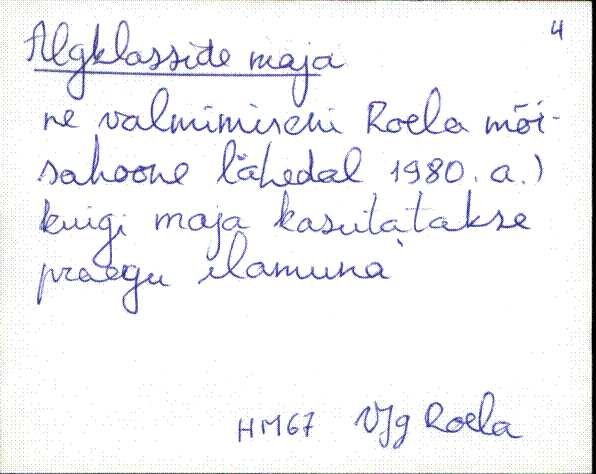 4
Algklasside maja
ne valmimiseni Roela mõi-
sahoone lähedal 1980. a.)
kuigi maja kasutatakse
praegu elamuna
HM67 VJg Roela